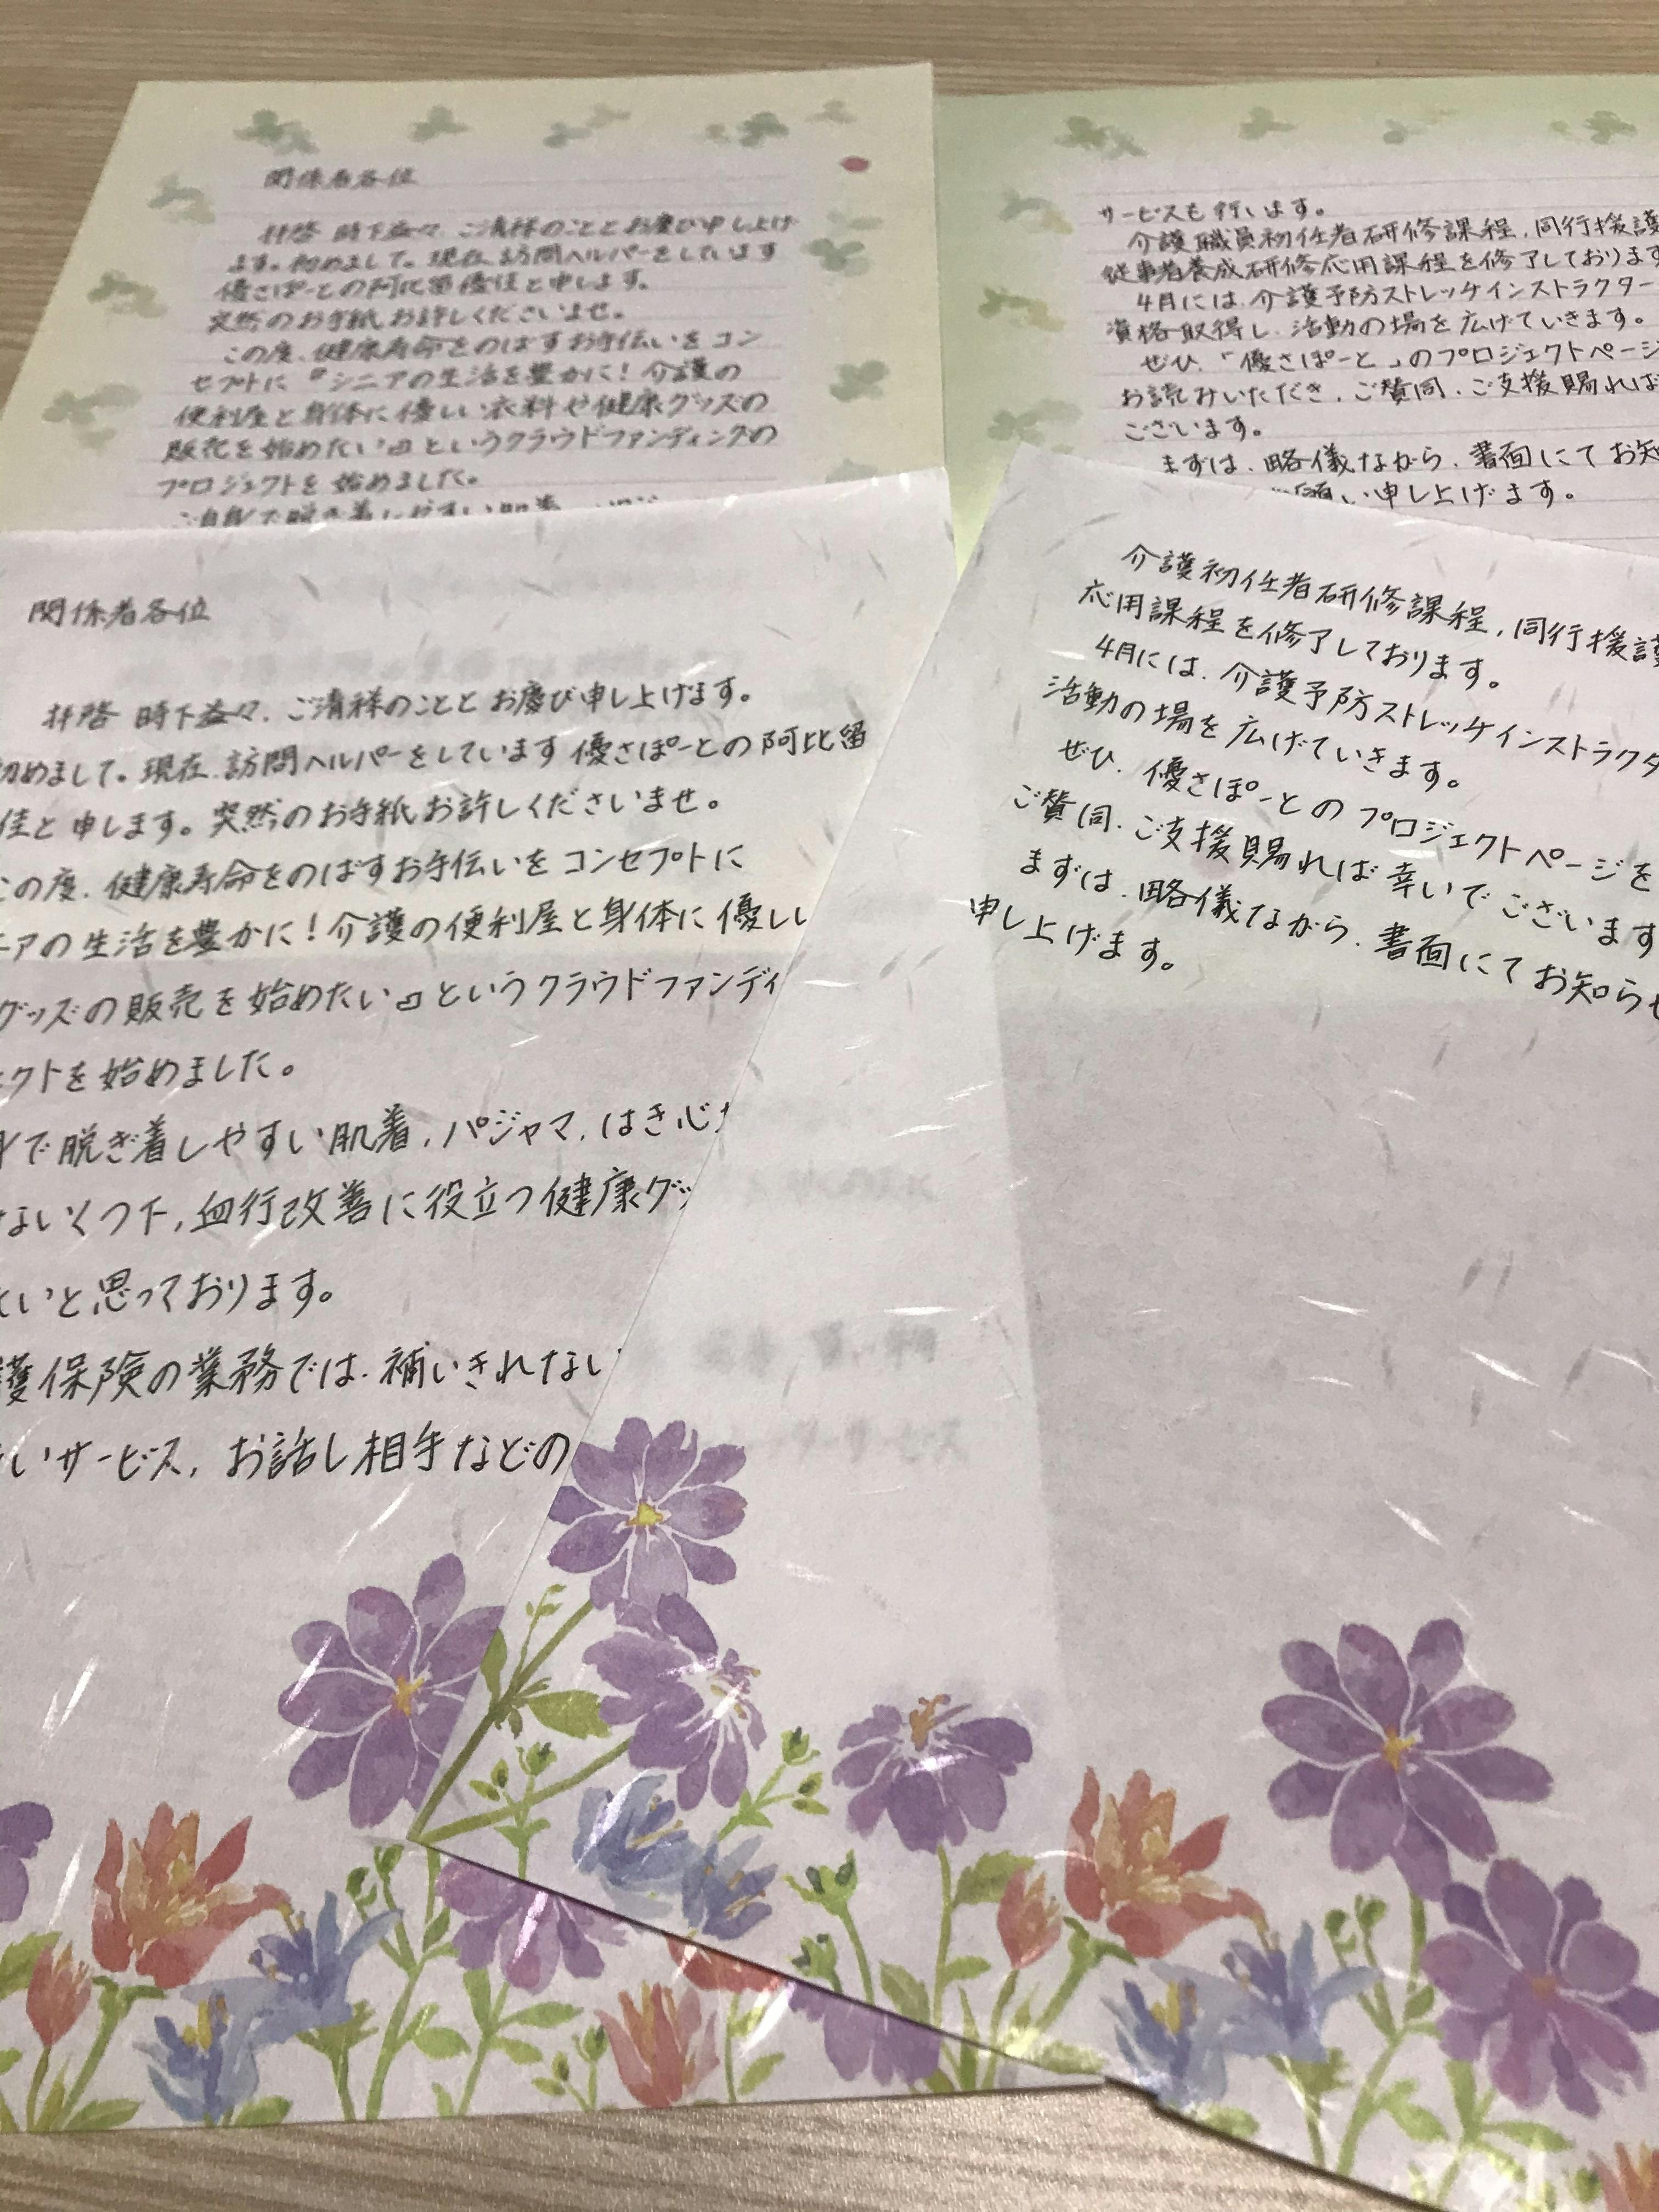 関係者各位
拝啓 時下益々、ご清祥のこととお慶び申し上げ
ます。初めまして。現在、訪問ヘルパーをしています
優さぽーとの阿比留優佳と申します。
突然のお手紙お許しくださいませ。
この度、健康寿命をのばすお手伝いをコン
セプトに『シニアの生活を豊かに！介護の
便利屋と身体に優しい衣料や健康グッズの
販売を始めたい』というクラウドファンディングの
プロジェクトを始めました。
ご自身で脱ぎ着しやすい肌着、
サービスも行います。
介護職員初任者研修課程、同行援護
従事者養成研修応用課程を修了しております
4月には、介護予防ストレッチインストラクター
資格取得し、活動の場を広げていきます。
ぜひ、「優さぽーと」のプロジェクトページ
お読みいただき、ご賛同、ご支援賜れば
ございます。
まずは、略儀ながら、書面にてお知
願い申し上げます。
関係者各位
拝啓 時下益々、ご清祥のこととお慶び申し上げます。
初めまして。現在、訪問ヘルパーをしています優さぽーとの阿比留
佳と申します。突然のお手紙お許しくださいませ。
この度、健康寿命をのばすお手伝いをコンセプトに
ニアの生活を豊かに！介護の便利屋と身体に優しい
グッズの販売を始めたい』というクラウドファンディ
ェクトを始めました。
で脱ぎ着しやすい肌着、パジャマ、はき心
ないくつ下、血行改善に役立つ健康グッ
たいと思っております。
護保険の業務では、補いきれない
いサービス、お話し相手などの
介護初任者研修課程、同行援護
応用課程を修了しております。
4月には、介護予防ストレッチインストラクタ
活動の場を広げていきます。
ぜひ、優さぽーとのプロジェクトページを
ご賛同、ご支援賜れば幸いでございます
まずは、略儀ながら、書面にてお知らせ
申し上げます。